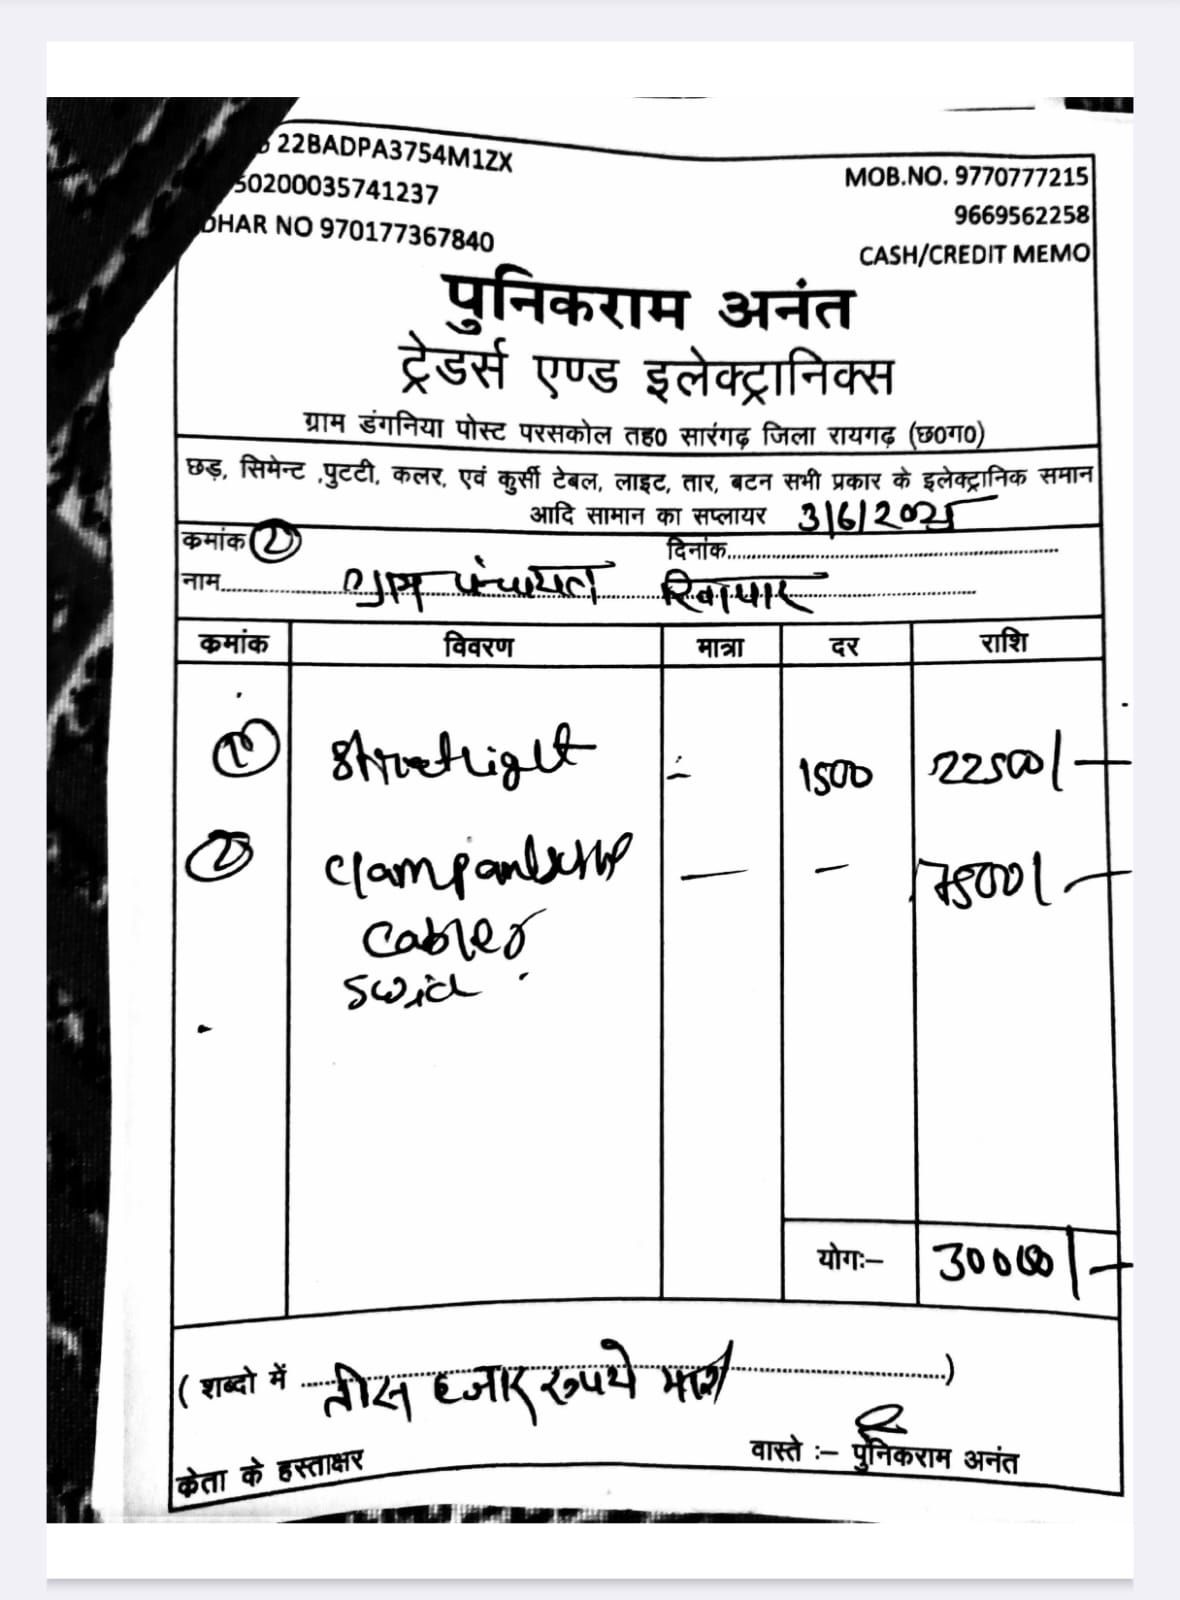 22BADPA3754M1ZX
50200035741237
DHAR NO 970177367840
MOB.NO. 9770777215
9669562258
CASH/CREDIT MEMO
पुनिकराम अनंत
ट्रेडर्स एण्ड इलेक्ट्रानिक्स
ग्राम डंगनिया पोस्ट परसकोल तह0 सारंगढ़ जिला रायगढ़ (छ0ग0)
छड़, सिमेन्ट ,पुटटी, कलर, एवं कुर्सी टेबल, लाइट, तार, बटन सभी प्रकार के इलेक्ट्रानिक समान
आदि सामान का सप्लायर 3/6/2025
कमांक 2 दिनांक
नाम ग्राम पंचायत
कमांक विवरण मात्रा दर राशि
1 Streetlight 1500 22500/-
2 - - 7500/-
Cables
योगः– 30000/-
( शब्दो में तीस हजार रूपये मात्र )
वास्ते :– पुनिकराम अनंत
केता के हस्ताक्षर